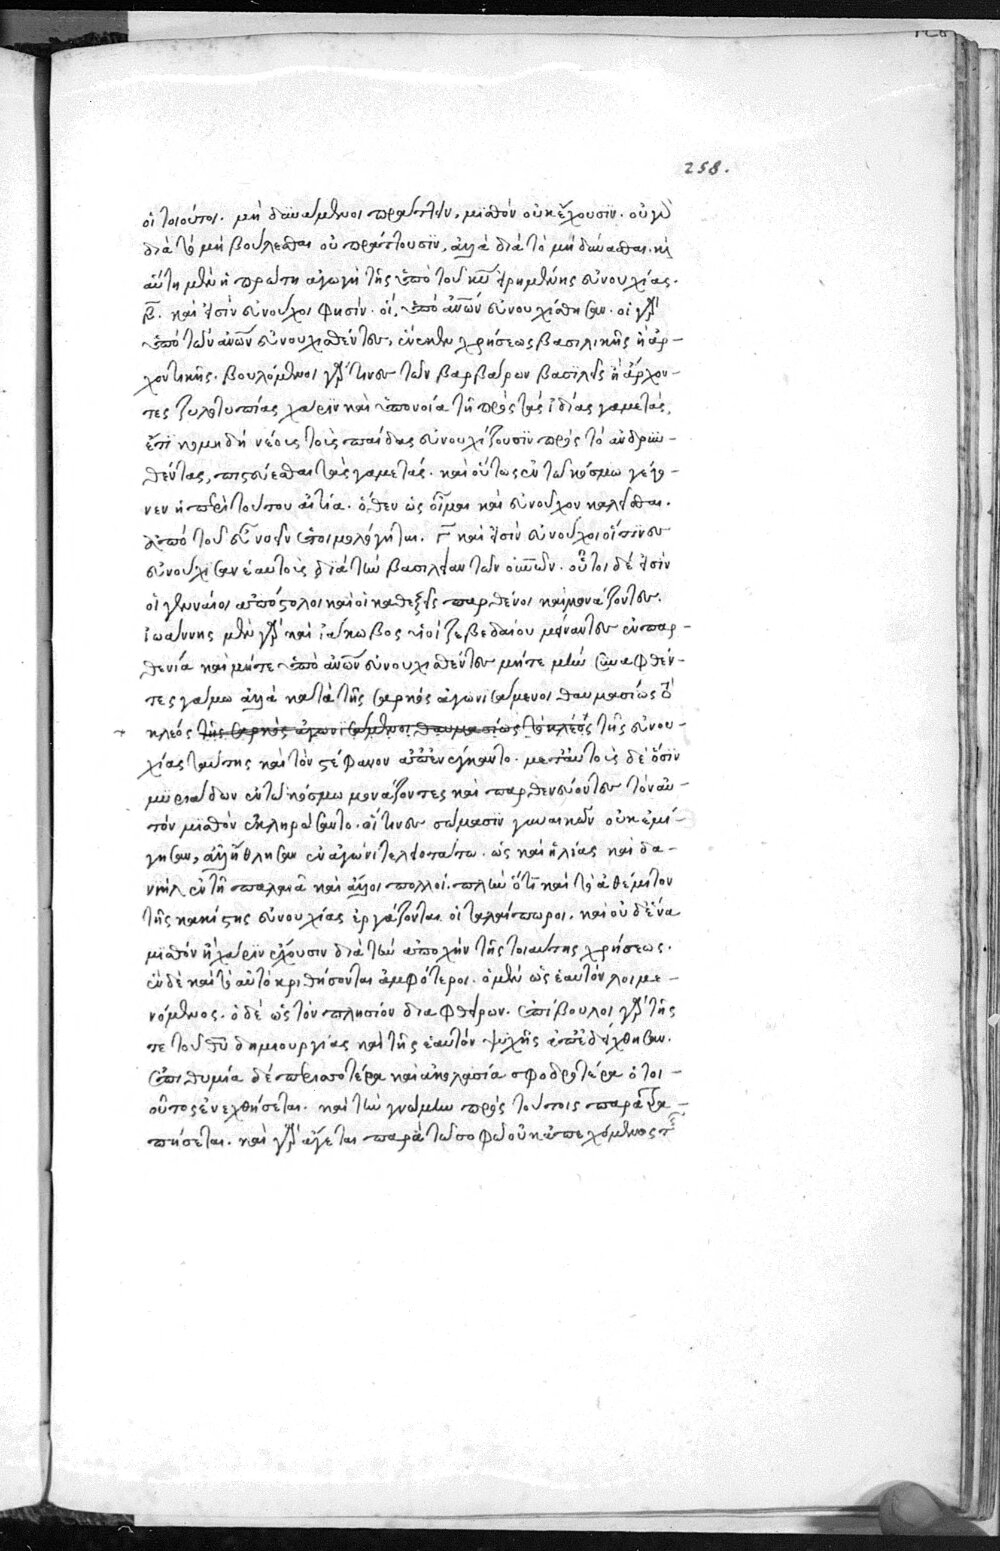 258.
οἱ τοιοῦτοι. μὴ δυνάμενοι πράττειν, μισθὸν οὐκ ἔχουσιν. οὐ γὰρ
διὰ τὸ μὴ βούλεσθαι οὐ πράττουσιν, ἀλλὰ διὰ τὸ μὴ δύνασθαι. καὶ
αὕτη μὲν ἡ πρώτη ἀγωγὴ τῆς ὑπὸ τοῦ κυ εἰρημένης εὐνουχίας.
β. καὶ εἰσὶν εὐνοῦχοι φησὶν. οἱ, ὑπὸ ἀνῶν εὐνουχίσθησαν. οἱ γὰρ
ὑπὸ τῶν ἀνῶν εὐνουχισθέντες, ἕνεκεν χρήσεως βασιλικῆς ἢ ἀρ-
χοντικῆς. βουλόμενοι γάρ τινες τῶν βαρβάρων βασιλεῖς ἢ ἄρχον-
τες ζηλοτυπίας χάριν καὶ ὑπονοία τῆ πρὸς τὰς ἰδίας γαμετὰς,
ἔτι κομηδῆ νέους τοὺς παῖδας εὐνουχίζουσιν πρὸς τὸ ἀνδρω-
θέντας, πιστεύεσθαι τὰς γαμετάς. καὶ οὕτως ἐν τῶ κόσμω γέγο-
νεν ἡ περὶ τούτου αἰτία. ὅθεν ὡς οἶμαι καὶ εὐνοῦχον καλεῖσθαι.
ἀπὸ τοῦ εὐνοεῖν ἐτοιμολόγηται. γ καὶ εἰσὶν εὐνοῦχοι οἵτινες
εὐνούχισαν ἑαυτοὺς διὰ τὴν βασιλείαν τῶν οὐνῶν. οὗτοι δέ εἰσιν
οἱ γενναῖοι ἀπόστολοι καὶ οἱ καθεξῆς παρθένοι καὶ μονάζοντες.
ἰωάννης μὲν γὰρ καὶ ἰάκωβος υἱοὶ ζεβεδαίου μείναντες ἐν παρ-
θενία καὶ μήτε ὑπὸ ἀνῶν εὐνουχισθέντες μήτε μὴν συναφθέν-
τες γάμω ἀλλὰ κατὰ τῆς σαρκὸς ἀγωνισάμενοι θαυμασίως τὸ
κλέος τῆς σαρκὸς ἀγωνισάμενοι θαυμασίως τὸ κλέος τῆς εὐνου-
χίας ταύτης καὶ τὸν στέφανον ἀπηνέγκαντο. μετ' αὐτοὺς δὲ ὅσων
μυριάδων ἐν τῶ κόσμω μονάζοντες καὶ παρθενεύοντες τὸν αὐ-
τὸν μισθὸν ἐκληρώσαντο. οἵτινες σώμασιν γυναικῶν οὐκ ἐμί-
γησαν, ἀλλ' ἤθλησαν ἐν ἀγῶνι τελειοτάτω. ὡς καὶ ἠλίας καὶ δα-
νιὴλ ἐν τῆ παλαιᾶ καὶ ἄλλοι πολλοί. πλὴν ὅτι καὶ τὸ ἀθέμιτον
τῆς κακίστης εὐνουχίας ἐργάζονται οἱ ταλαίπωροι. καὶ οὐδένα
μισθὸν ἢ χάριν ἔχουσιν διὰ τὴν ἀποχὴν τῆς τοιαύτης χρήσεως.
ἓν δὲ καὶ τὸ αὐτὸ κριθήσονται ἀμφότεροι. ὁ μὲν ὡς ἑαυτὸν λοιμε-
νόμενος. ὁ δὲ ὡς τὸν πλησίον διαφθείρων. ἐπίβουλοι γὰρ τῆς
τε τοῦ θυ δημιουργίας καὶ τῆς ἑαυτὸν ψυχῆς ἀπεδείχθησαν.
ἐπιθυμία δὲ περισσοτέρα καὶ ἀκολασία σφοδροτέρα ὁ τοι-
οῦτος ἐνεχθήσεται. καὶ τὴν γνώμην πρὸς τούτοις παραστα-
τήσεται. καὶ γὰρ ἄγεται παρὰ τῶ σοφῶ οὐκ ἀπεχόμενος